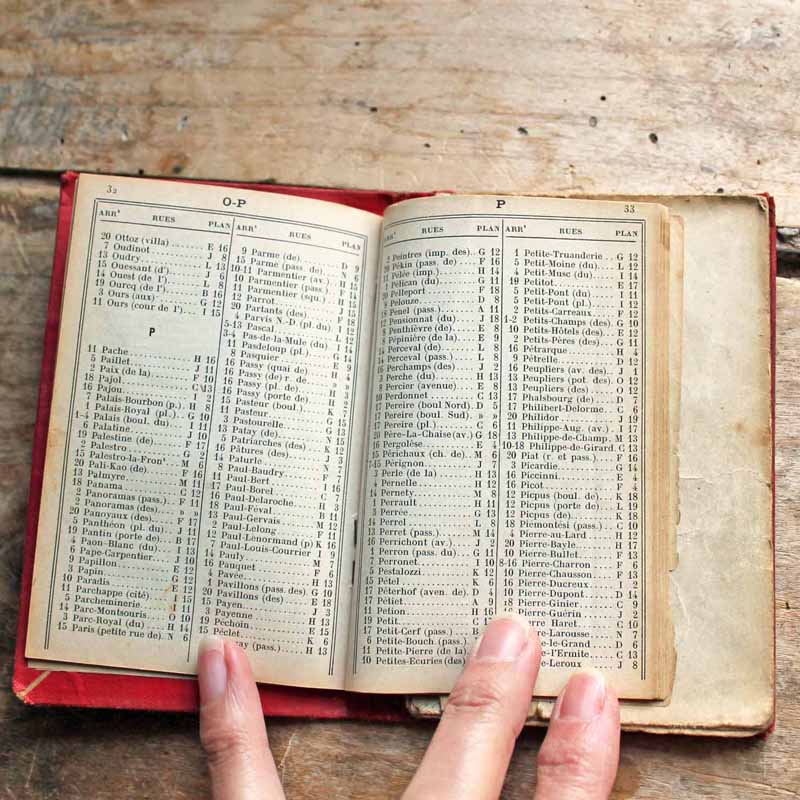 32
O-P
ARRᵗ RUES PLAN
20 Ottoz (villa) E 16
7 Oudinot J 8
13 Oudry L 13
15 Ouessant (d') I 6
14 Ouest (de l') L 8
19 Ourcq (de l') B 16
3 Ours (aux) G 12
11 Ours (cour de l') I 15
P
11 Pache H 16
5 Paillet J 11
2 Paix (de la) F 10
18 Pajol C 13
16 Pajou
7 Palais-Bourbon (p.) H 8
1 Palais-Royal (pl.) G 10
1-4 Palais (boul. du) I 11
6 Palatine J 10
19 Palestine (de) F 17
2 Palestro G
15 Palestro-la-Fron' M 6
20 Pali-Kao (de) F 16
13 Palmyre M
18 Panama C 12
2 Panoramas (pass.) F 11
2 Panoramas (des) »
20 Panoyaux (des) F 17
5 Panthéon (pl. du) J 11
19 Pantin (porte de) B 17
4 Paon-Blanc (du) I 13
6 Pape-Carpentier J 10
9 Papillon E 12
3 Papin G 12
10 Paradis E 12
11 Parchappe (cité) I 15
5 Parcheminerie I 11
14 Parc-Montsouris O 10
3 Parc-Royal (du) H 14
15 Paris (petite rue de) N 6
ARRᵗ RUES PLAN
9 Parme (de) D 9
15 Parme (pass. de) N 6
10-11 Parmentier (av.) H 15
10 Parmentier (pass.) F 14
11 Parmentier (squ.) H
12 Parrot J 15
20 Partants (des) F 18
4 Parvis N.-D (pl. du) I 12
5-13 Pascal L 12
3-4 Pas-de-la-Mule (du) I 14
11 Pasdeloup (pl.) G 14
8 Pasquier E 9
16 Passy (quai de) H 4
16 Passy (de) r. de » »
16 Passy (pl. de) H
16 Passy (porte de) H 2
15 Pasteur (boul.) K 7
11 Pasteur G 15
3 Pastourelle G 13
13 Patay (de) N 15
5 Patriarches (des) K 12
16 Pâtures (des) J 3
8 Paturle N 7
8 Paul-Baudry F 7
11 Paul-Bert I 16
17 Paul-Borel C 7
16 Paul-Delaroche H 3
18 Paul-Féval B 11
13 Paul-Gervais M 12
2 Paul-Lelong F 11
12 Paul-Lenormand (p) K 16
7 Paul-Louis-Courrier I 9
14 Pauly M 7
16 Pauquet F 6
4 Pavée H 13
2 Pavillons (pass. des) G 10
20 Pavillons (des) E 18
15 Payen J 3
3 Payenne H 13
19 Péchoin E 15
15 Péclet K 6
ray (pass.) H 13
P
33
RUES PLAN
2 Peintres (imp. des) G 12
20 Pékin (pass. de) F 16
11 Pelée (imp.) H 14
1 Pélican (du) G 11
20 Pelleport F 18
8 Pelouze D 8
18 Penel (pass.) A 11
12 Pensionnat (du) J 18
8 Penthièvre (de) E 8
8 Pépinière (de la) E 9
14 Perceval (de) L 8
14 Perceval (pass.) L 8
16 Perchamps (des) J 2
3 Perche (du) H 13
8 Percier (avenue) E 8
10 Perdonnet C 13
17 Pereire (boul Nord) D 5
17 Pereire (boul. Sud) » »
17 Pereire (pl.) C 6
20 Père-La-Chaise (av.) G 18
16 Pergolèse E 4
15 Périchaux (ch. de) M 6
7-15 Pérignon J 7
3 Perle (de la) H 13
4 Pernelle H 12
14 Pernety M 8
1 Perrault H 11
3 Perrée G 13
14 Perrel L 8
13 Perret (pass.) M 14
16 Perrichont (av.) J 2
1 Perron (pass. du) G 11
7 Perronet I 10
5 Pestalozzi K 12
15 Pétel K 6
17 Péterhof (aven. de) D 4
17 Pétiet A 9
11 Petion H 16
19 Petit C
17 Petit-Cerf (pass.) B
6 Petite-Bouch (pass.)
11 Petite-Pierre (de la)
10 Petites-Ecuries (des)
ARRᵗ RUES PLAN
1 Petite-Truanderie G 12
5 Petit-Moine (du) L 12
4 Petit-Musc (du) I 14
19 Petitot E 17
5 Petit-Pont (du) I 11
5 Petit-Pont (pl.) I 12
2 Petits-Carreaux F 12
1-2 Petits-Champs (des) G 10
10 Petits-Hôtels (des) E 12
2 Petits-Pères (des) G 11
16 Pétrarque H 4
9 Pétrelle D 12
7 Peupliers (av. des) J 1
13 Peupliers (pot. des) O 12
13 Peupliers (des) O 12
17 Phalsbourg (de) D 7
17 Philibert-Delorme C 6
20 Philidor J 19
11 Philippe-Aug. (av.) I 17
13 Philippe-de-Champ. M 13
10-18 Philippe-de-Girard C 13
20 Piat (r. et pass.) F 16
3 Picardie G 14
16 Piccinni E 4
16 Picot F 4
12 Picpus (boul. de) K 18
12 Picpus (porte de) L 19
12 Picpus (de) K 18
18 Piémontési (pass.) C 10
4 Pierre-au-Lard H 12
20 Pierre-Bayle H 17
10 Pierre-Bullet F 13
8-16 Pierre-Charron F 6
10 Pierre-Chausson F 13
16 Pierre-Ducreux I 2
10 Pierre-Dupont D 14
18 Pierre-Ginier C 9
Pierre-Guérin J 2
Pierre Haret C 10
-Larousse N 7
-le-Grand D 6
-l'Ermite C 13
-Leroux J 8